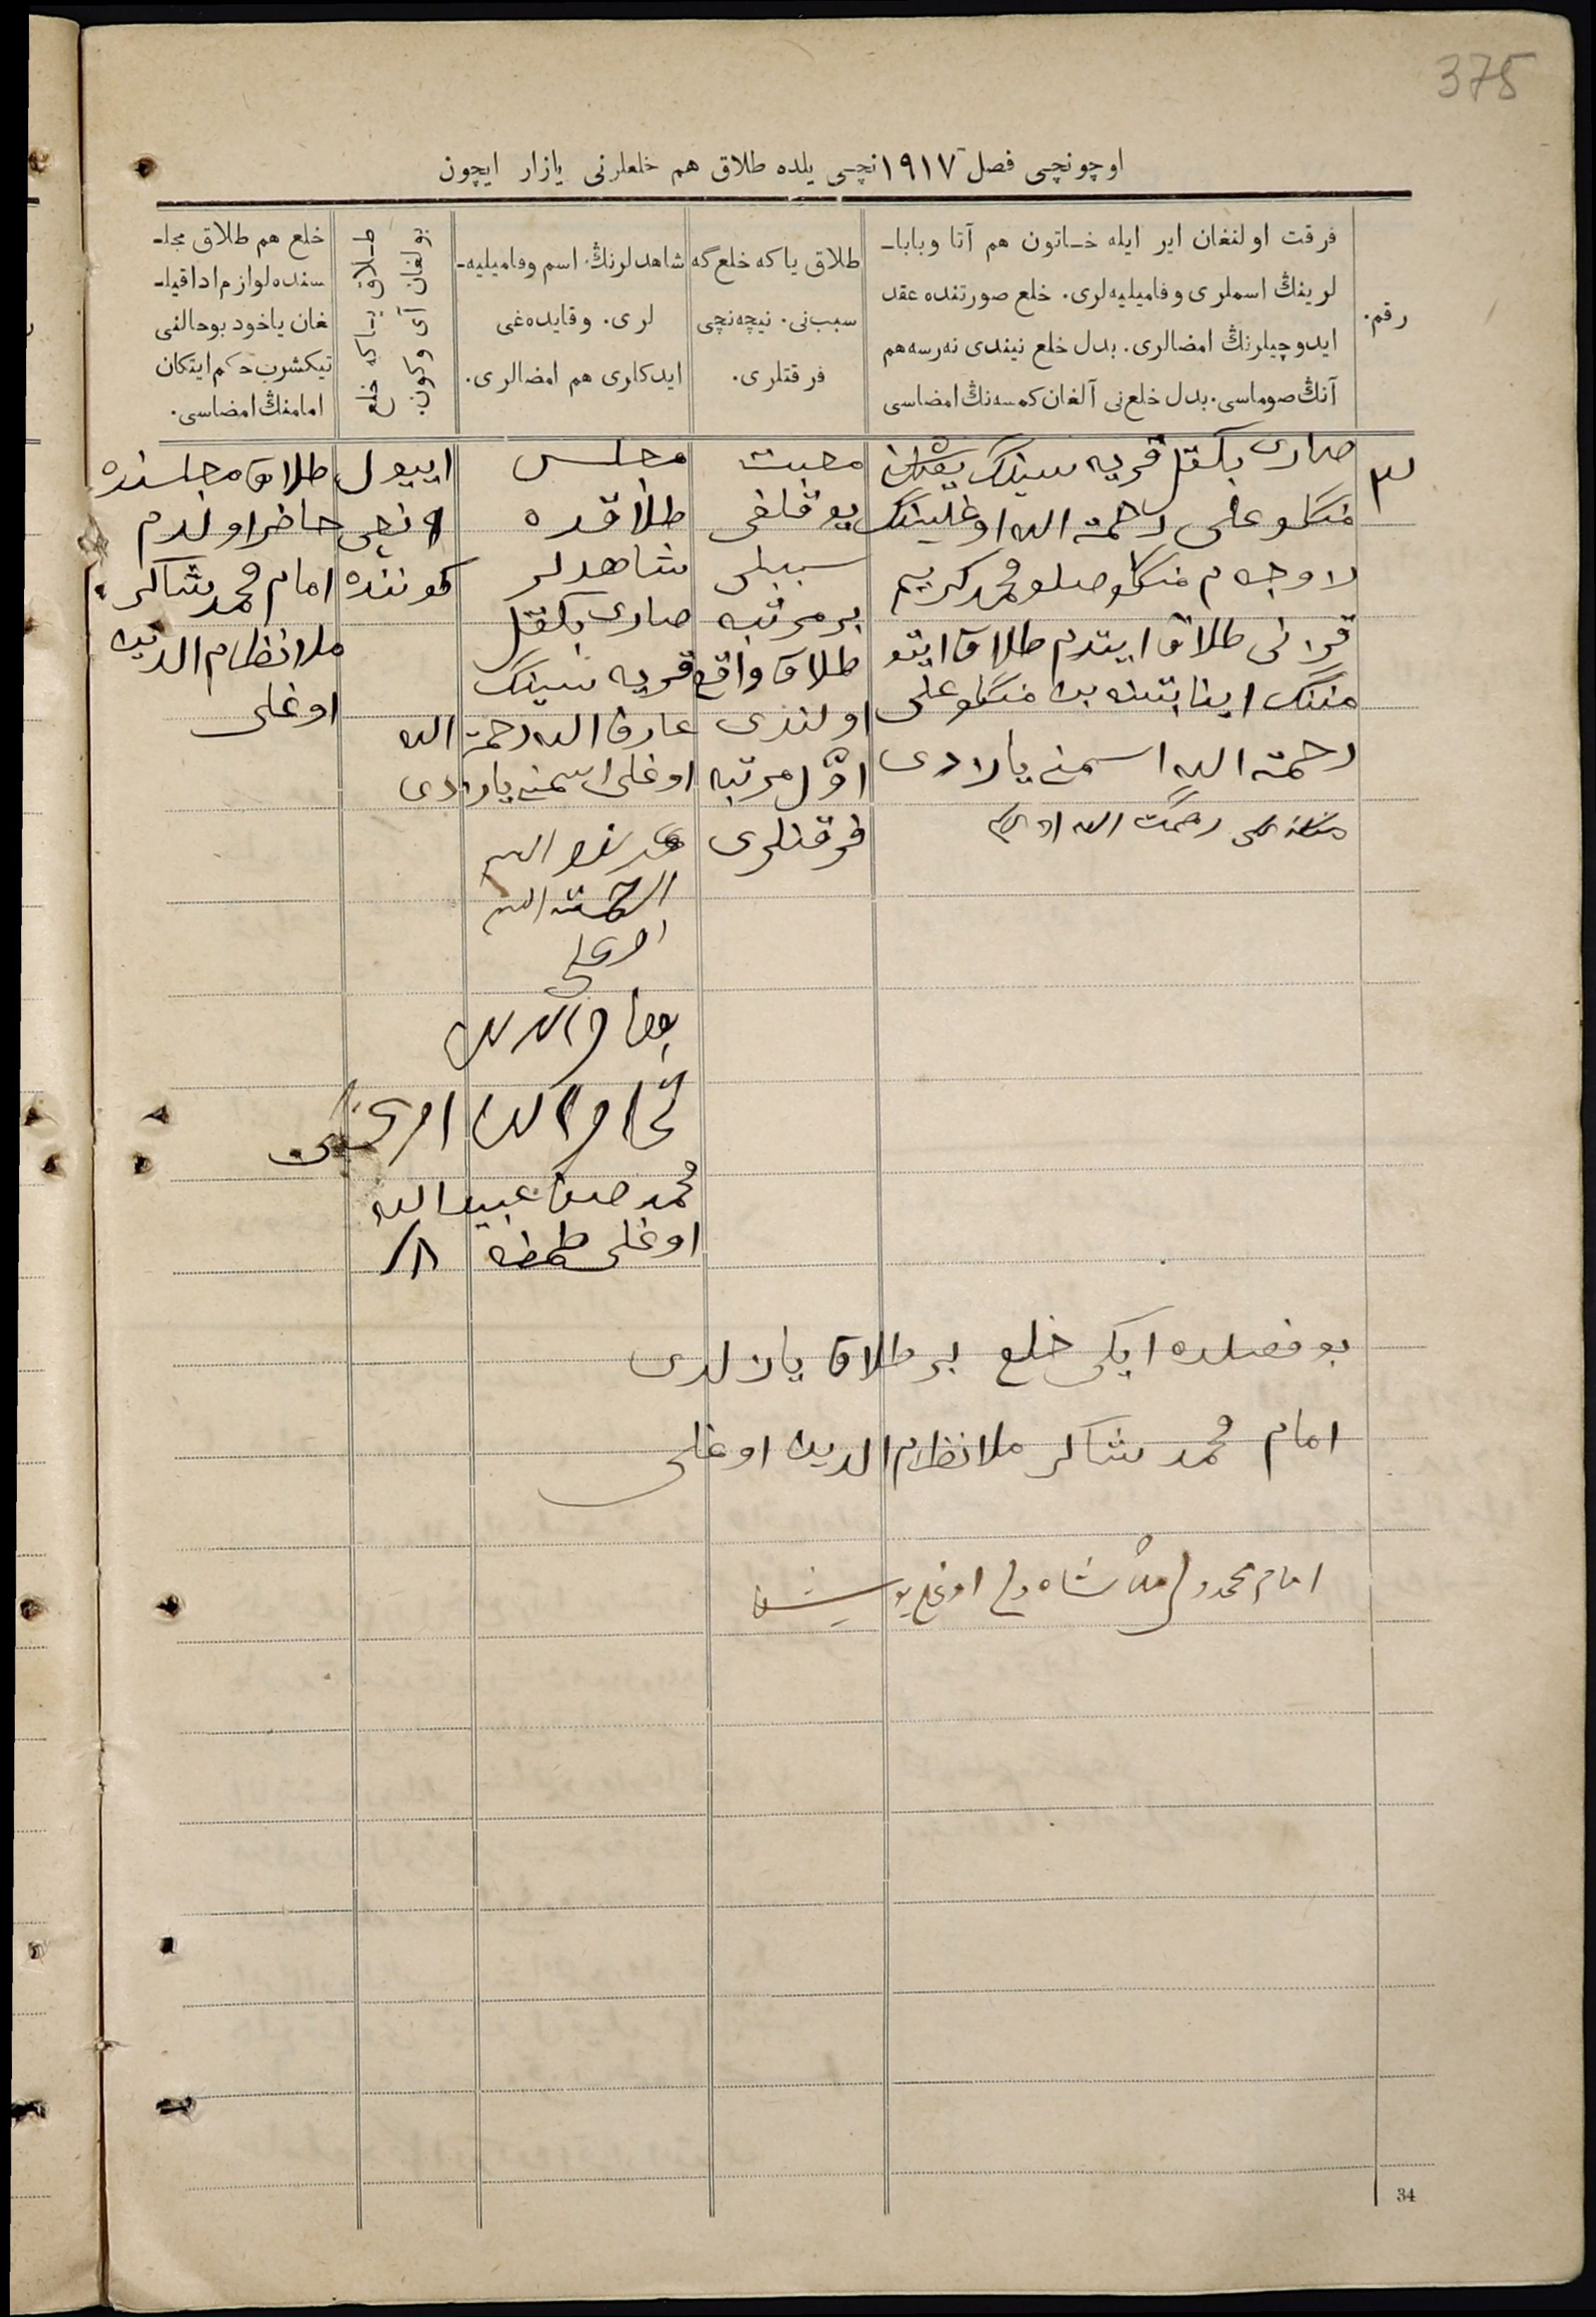 375
اوچونچی فصل ١٩١٧نچی یلده طلاق هم خلعلرنی یازار ایچون
رقم.
فرقت اولنغان ایر ایله خـاتون هم آتا وباباـ
لرینڭ اسملری وفامیلیه‌لری. خلع صورتنده عقد
ایدوچیلرنڭ امضالری. بدل خلع نیندی نه‌رسه هم
آنڭ صوماسی. بدل خلع‌نی آلغان کمسه‌نڭ امضاسی
طلاق یاکه خلع‌گه
سبب‌نی. نیچه‌نچی
فرقتلری.
شاهدلرنڭ اسم وفامیلیه‌ـ
لری. وقایده‌غی
ایدکلری هم امضالری.
طـلاق یـاکه خلع
بولغان آی وکون.
خلع هم طلاق مجلـ
سنده لوازم ادا قیلـ
غان یاخود بوحالنی
تیکشرب حکم ایتکان
امامنڭ امضاسی.
٣
صاری بکقل قریه سینک
منکلو علی رحمة الله اوغلینک
لا وجه م منکلو صلو محمد کریم
قزانی طلاق ایتدم طلاق ایتو
مننگ اینابتینه بن منکلو علی
رحمة الله اسمنی یارادی
رحمت الله
محبت
یوقلغی
سببلی
بر مرتبه
طلاق واقع
اولندی
اوّل مرتبه
فرقتلری
مجلس
طلاقده
شاهدلر
صاری بکقل
قریه سینک
عارف الله رحمة الله
اوغلی اسمنی یارادی
الله
الله
اوغلی
محمد صفا عبید الله
اوغلی
اییول
٩ نچی
کوننده
طلاق مجلسنده
حاضر اولدم
امام محمد شاکر
ملا نظام الدین
اوغلی
بو فصلده ایکی خلع بر طلاق یازلدی
امام محمد شاکر ملا نظام الدین اوغلی
امام محمد ولی ملا شاه ولی اوغلی
34